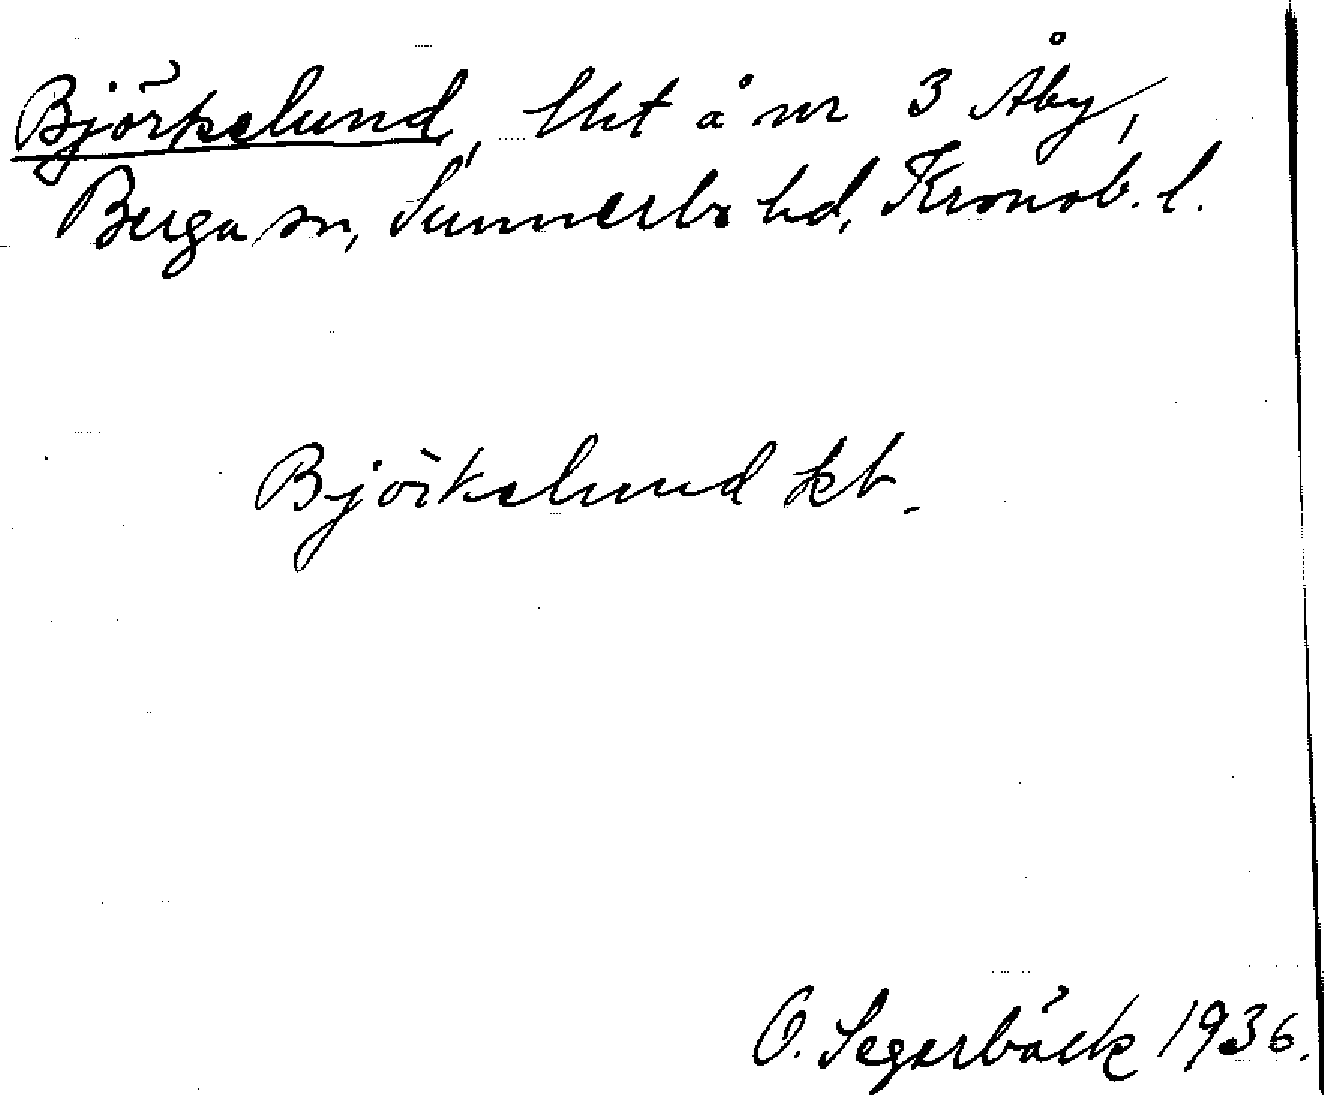 Björkelund, lht å nr 3 Åby,
Berga sn, Sunnerbo hd, Kronob. l.
Björkelund kb.
O. Segerbäck 1936.